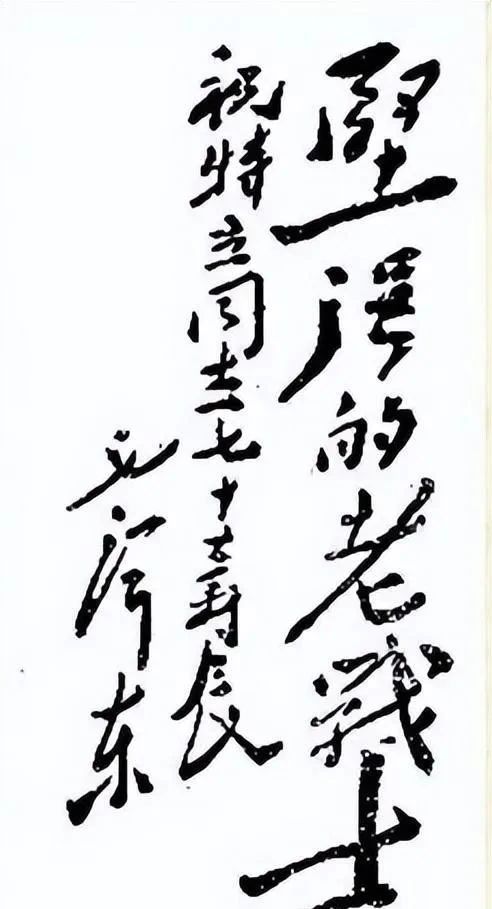 坚强的老战士
祝特立同志七十大寿辰
毛泽东